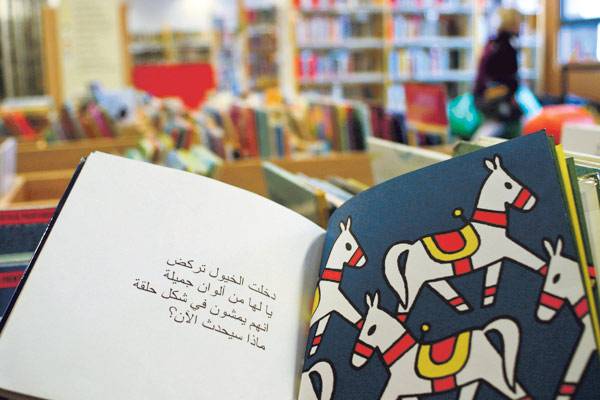 دخلت الخيول تركض
يا لها من ألوان جميلة
انهم يمشون في شكل حلقة
ماذا سيحدث الآن؟